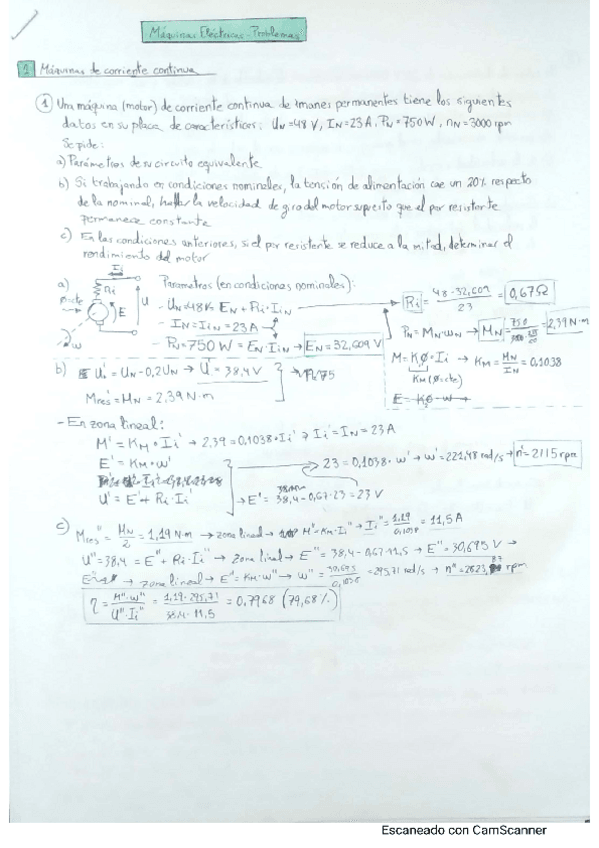 Máquinas Eléctricas - Problemas
1 Máquinas de corriente continua
① Una máquina (motor) de corriente continua de imanes permanentes tiene los siguientes
datos en su placa de características: UN=48 V, IN=23A, PN=750W, nN=3000 rpm
Se pide:
a) Parámetros de su circuito equivalente
b) Si trabajando en condiciones nominales, la tensión de alimentación cae un 20% respecto
de la nominal, hallar la velocidad de giro del motor supuesto que el par resistente
permanece constante
c) En las condiciones anteriores, si el par resistente se reduce a la mitad, determinar el
rendimiento del motor
a) Ii Ri U E ω
Parámetros (en condiciones nominales):
- UN=48= EN + Ri·IiN → Ri = 48-32,609 / 23 = 0,67Ω
- IN = IiN = 23 A
- PN = 750 W = EN·IiN → EN = 32,609 V
PN = MN·ωN → MN = 750 = 2,39 N·m
M = Kø·Ii → KM = MN / IN = 0,1038
KM (ø=cte)
b) U' = UN - 0,2UN → U' = 38,4V
Mres' = MN = 2,39 N·m
- En zona lineal:
M' = KM·Ii' → 2,39 = 0,1038·Ii' → Ii' = IN = 23 A
E' = KM·ω' → 23 = 0,1038·ω' → ω' = 221,48 rad/s → n' = 2115 rpm
U' = E' + Ri·Ii' → E' = 38,4 - 0,67·23 = 23 V
c) Mres'' = MN / 2 = 1,19 N·m → zona lineal → M'' = KM·Ii'' → Ii'' = 1,19 / 0,1038 = 11,5 A
U'' = 38,4 = E'' + Ri·Ii'' → zona lineal → E'' = 38,4 - 0,67·11,5 → E'' = 30,695 V →
→ zona lineal → E'' = KM·ω'' → ω'' = 30,695 / 0,1038 = 295,71 rad/s → n'' = 2823, rpm
η = M''·ω'' / U''·Ii'' = 1,19·295,71 / 38,4·11,5 = 0,7968 (79,68%)
Escaneado con CamScanner